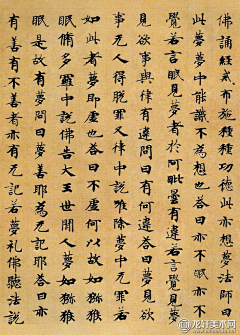 佛誦經戒布施種種功德此亦想夢法師曰
此夢夢中能識不為想也答曰亦不眠亦不
覺若言眠見夢者於阿毗曇有違若言覺見夢
見欲事與律有違問曰有何違答曰夢見欲
事无人得脫罪又律中說唯除夢中无罪若
如此者夢即虛也答曰不虛何以故如獼猴
眠脩多羅中說佛告大王世間人夢如獼猴
眠是故有夢問曰夢善耶為无記耶答曰亦
有善有不善者亦有无記若夢禮佛聽法說
龙轩美术网